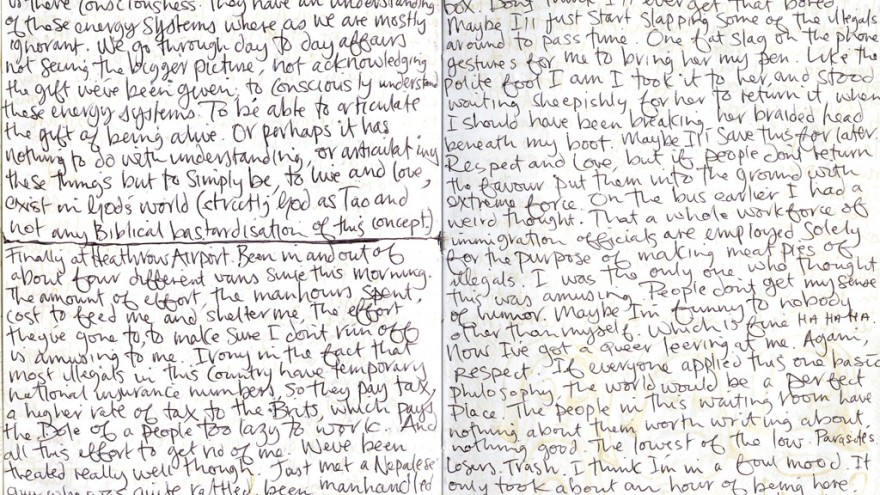 of these energy systems where as we are mostly
ignorant. We go through day to day affairs
not seeing the bigger picture, not acknowledging
the gift we've been given, to consciously understand
these energy systems. To be able to articulate
the gift of being alive. Or perhaps it has
nothing to do with understanding, or articulating
these things but to simply be, to live and love,
exist in God's world (strictly God as Tao and
not any Biblical bastardisation of this concept)
Finally at Heathrow Airport. Been in and out of
about four different vans since this morning.
The amount of effort, the manhours spent,
cost to feed me and shelter me, the effort
they've gone to, to make sure I don't run off
is amusing to me. Irony in the fact that
most illegals in this country have temporary
national insurance numbers, so they pay tax,
a higher rate of tax to the Brits, which pays
the Dole of a people too lazy to work. And
all this effort to get rid of me. We've been
treated really well though. Just met a Nepalese
guy who was quite rattled, been manhandled
box. Don't think I'll ever get that bored.
Maybe I'll just start slapping some of the illegals
around to pass time. One fat slag on the phone
gestures for me to bring her my pen. Like the
polite fool I am I took it to her, and stood
waiting sheepishly for her to return it, when
I should have been breaking her braided head
beneath my boot. Maybe I'll save this for later.
Respect and Love, but if people don't return
the favour put them into the ground with
extreme force. On the bus earlier I had a
weird thought. That a whole workforce of
immigration officials are employed solely
for the purpose of making meat pies of
illegals. I was the only one who thought
this was amusing. People don't get my sense
of humor. Maybe I'm funny to nobody
other than myself. Which is fine HA HA HA.
Now I've got a queer leering at me. Again,
respect. If everyone applied this one basic
philosophy, the world would be a perfect
place. The people in this waiting room have
nothing about them worth writing about,
nothing good. The lowest of the low. Parasites
Losers. Trash. I think I'm in a foul mood. It
only took about an hour of being here.